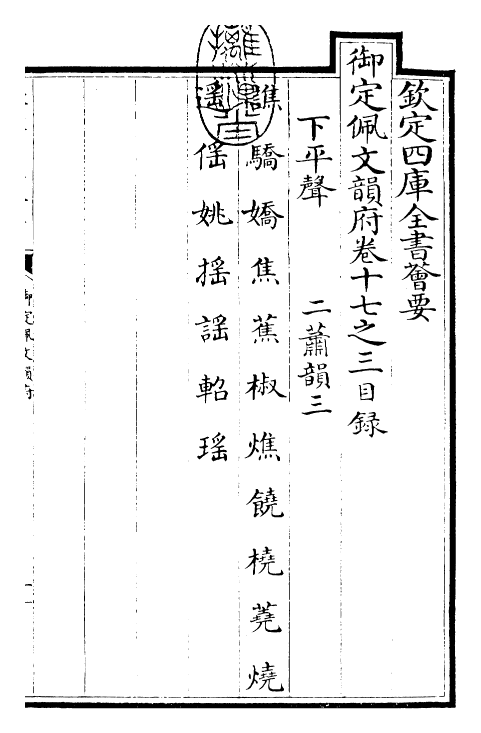 欽定四庫全書薈要
御定佩文韻府卷十七之三目錄
下平聲 二蕭韻三
譙驕嬌焦蕉椒燋饒橈蕘燒
遥傜姚揺謡軺瑶
御定佩文韻府